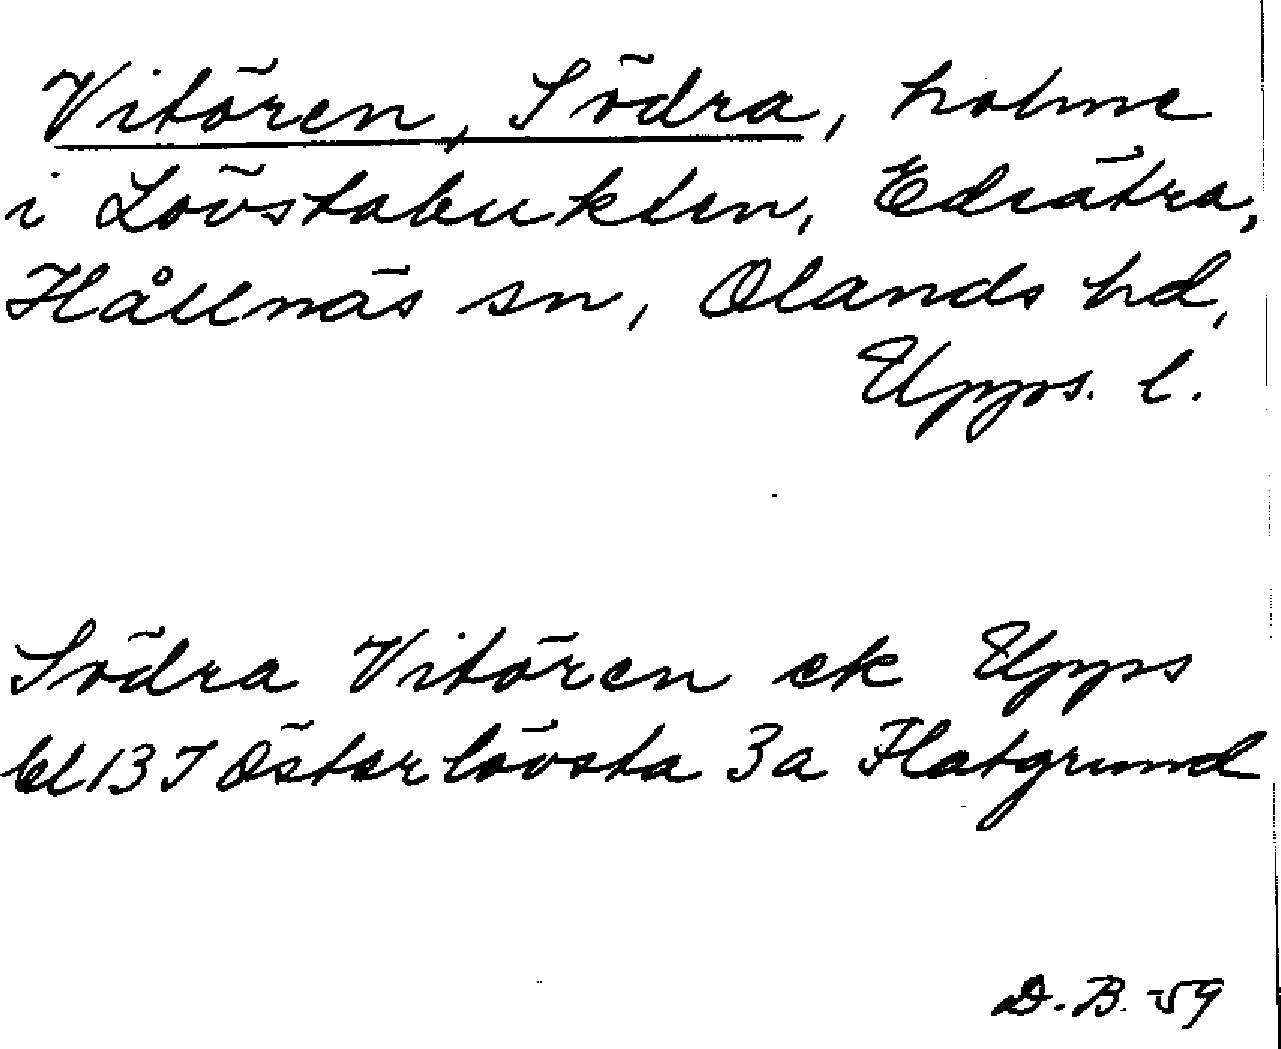 Vitören, Södra, holme
i Lövstabukten, Edsätra,
Hållnäs sn, Olands hd,
Upps. l.
Södra Vitören ek Upps
bl 13 I Österlövsta 3a Flatgrund
D.B. -59